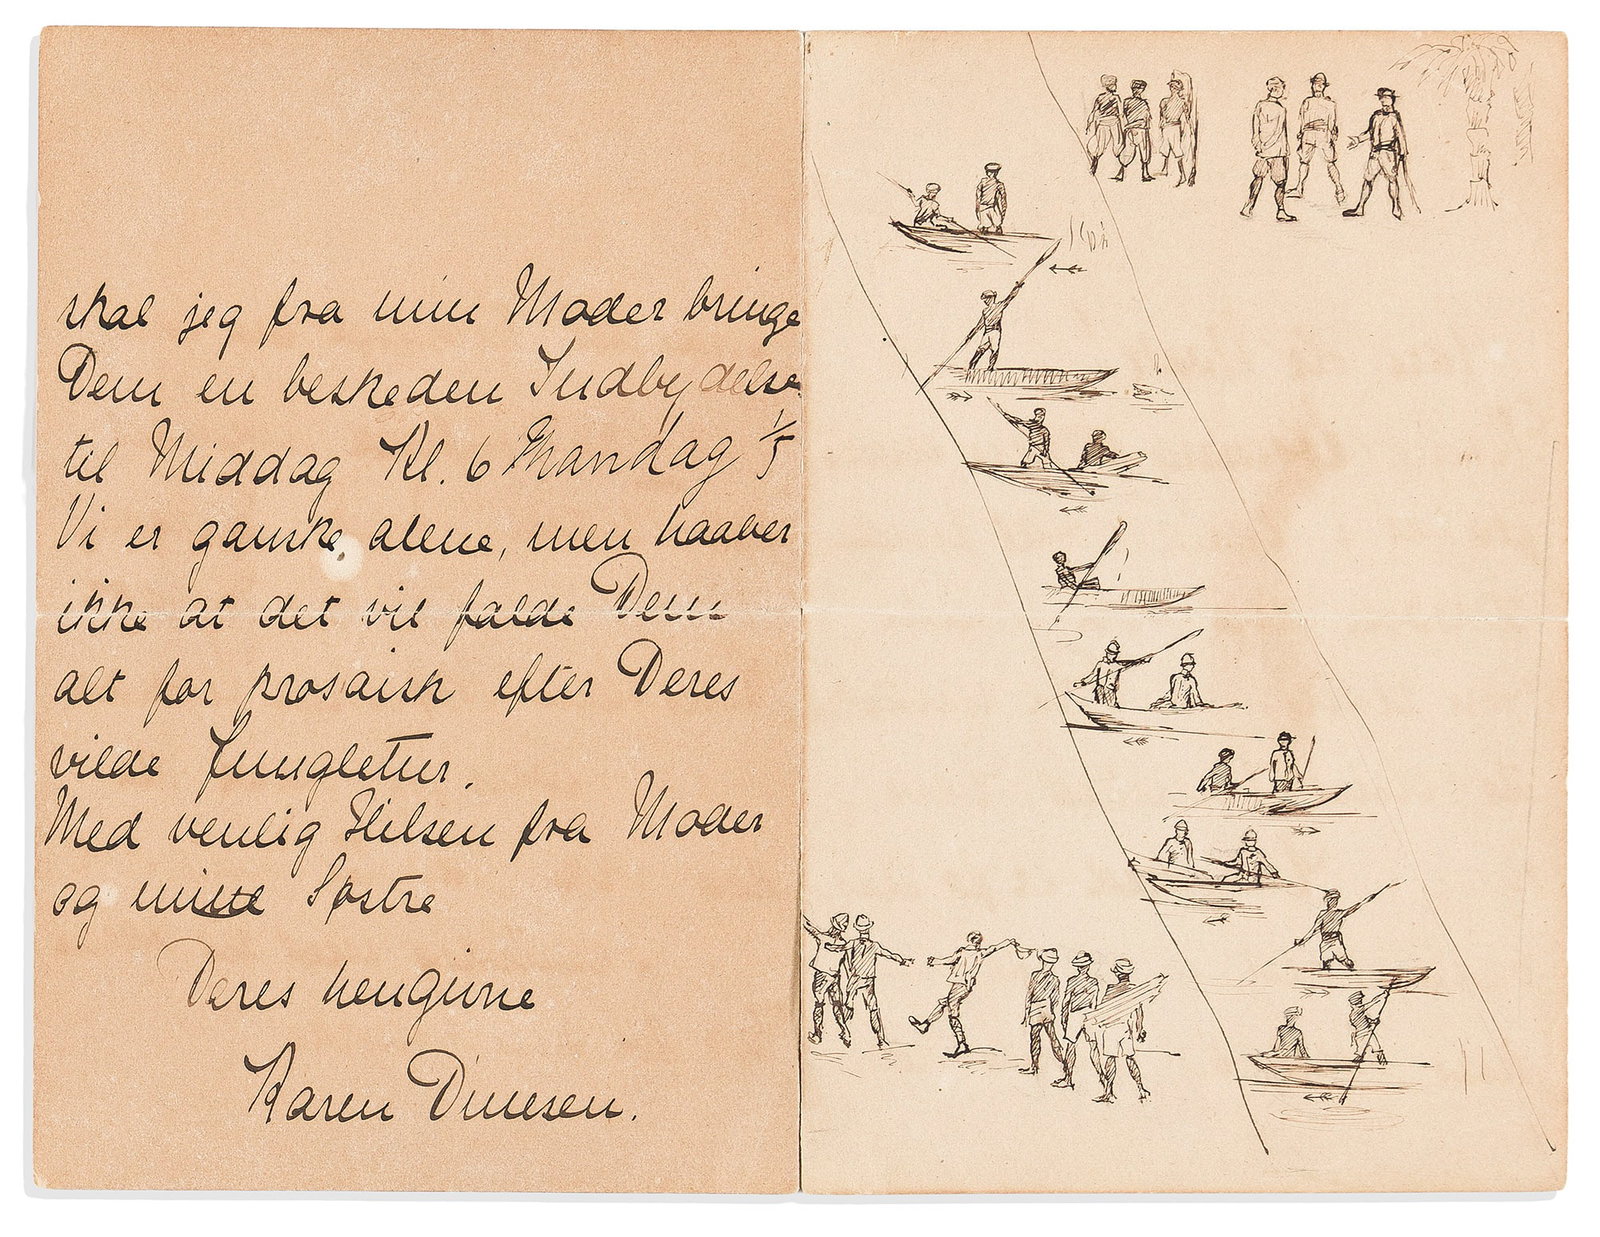 skal jeg fra min Moder bringe
Dem en beskeden Indbydelse
til Middag Kl. 6 Mandag 1/5
Vi er ganske alene, men haaber
ikke at det vil falde Dem
alt for prosaisk efter Deres
vilde Jungletur.
Med venlig Hilsen fra Moder
og mine Søstre
Deres hengivne
Karen Dinesen.